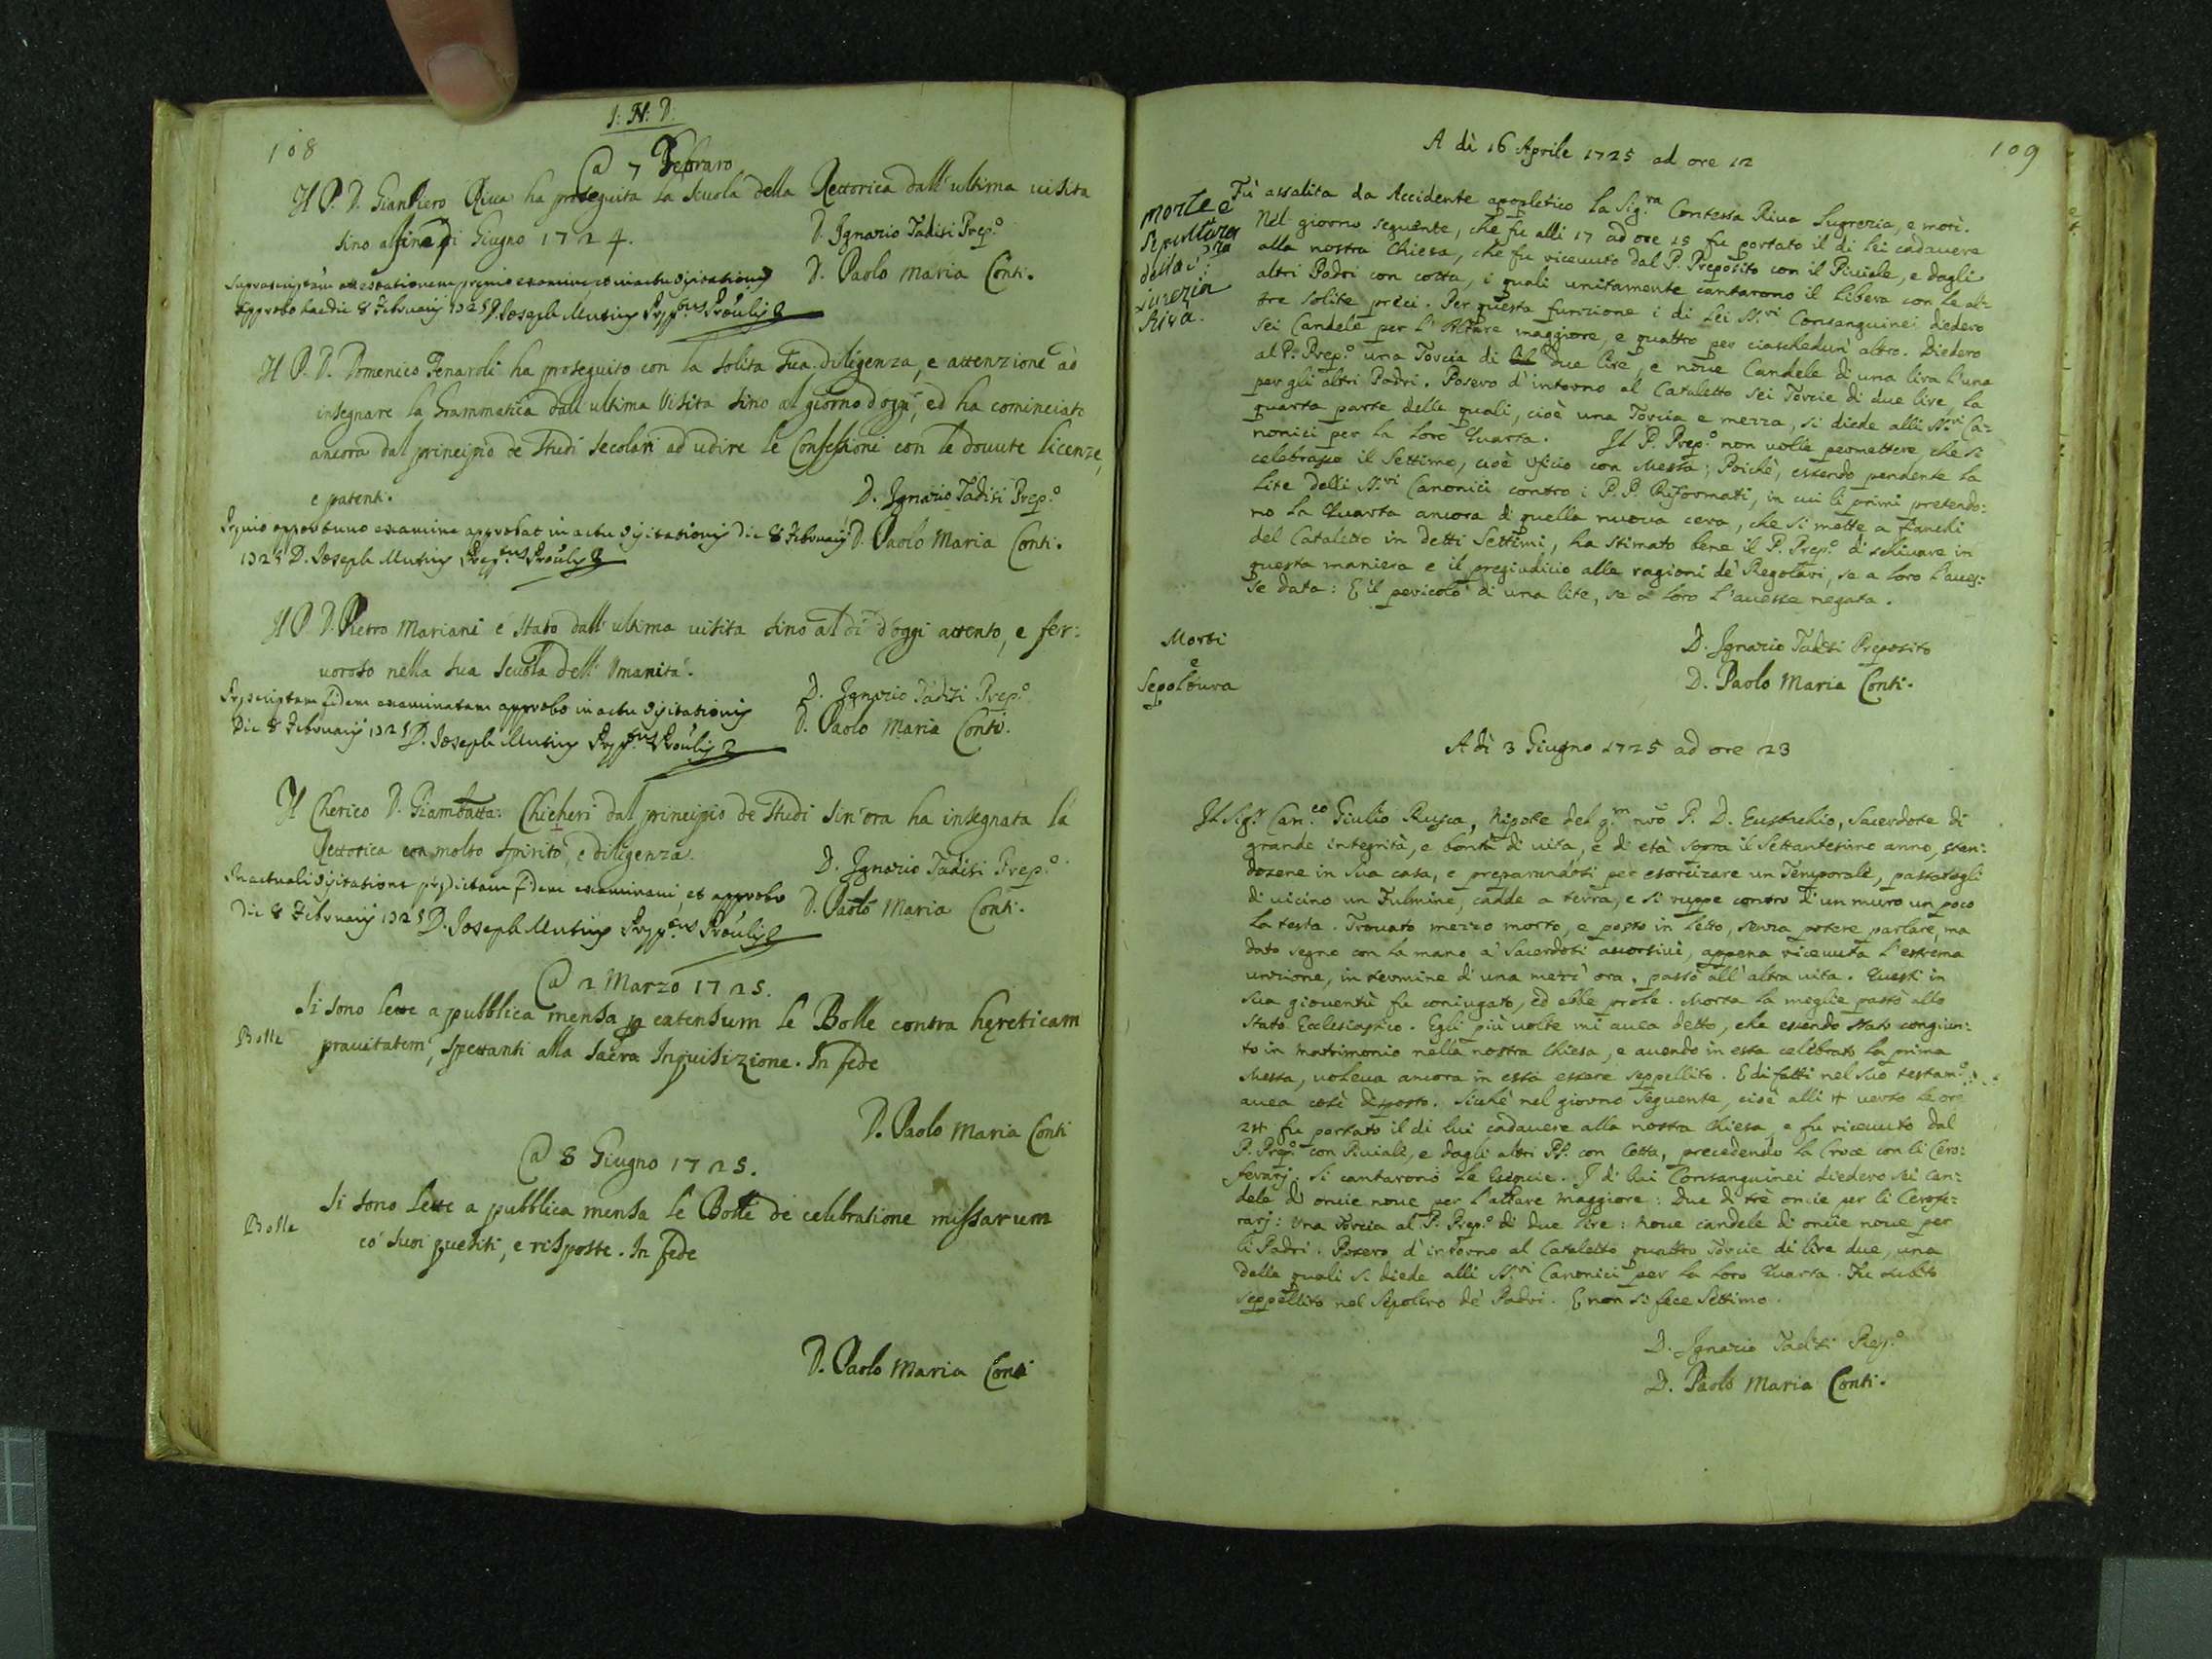 108
I: N: D.
@ 7 Febraro
Il P. D. GianPiero Riva ha proseguita la scuola della Rettorica dall' ultima visita
sino al fine di Giugno 1724.
D. Ignazio Tadisi Prep.º
D. Paolo Maria Conti.
approbo hac die 8 Februarij 1725 D. Joseph Mutius
Il P. D. Domenico Fenaroli ha proseguito con la solita sua diligenza, e attenzione ad
insegnare la Grammatica dall' ultima Visita sino al giorno d'oggi, ed ha cominciato
ancora dal principio de Studi secolari ad udire le Confessioni con le dovute licenze,
e patenti.
D. Ignazio Tadisi Prep.º
opportuno examine approbat in actu visitationis die 8 Februarij
D. Paolo Maria Conti.
1725 D. Joseph Mutius
Il P. D. Pietro Mariani è stato dall' ultima visita sino al dì d'oggi attento, e fer:
voroso nella sua scuola dell' Umanità.
D. Ignazio Tadisi Prep.º
fidem examinatam approbo in actu visitationis
D. Paolo Maria Conti.
Die 8 Februarij 1725 D. Joseph Mutius
Il Cherico D. Giambatta: Chicheri dal principio de Studi sin' ora ha insegnata la
Rettorica con molto spirito, e diligenza.
D. Ignazio Tadisi Prep.º
In actuali visitatione fidem examinavi, et approbo
D. Paolo Maria Conti.
Die 8 Februarij 1725 D. Joseph Mutius
@ 2 Marzo 1725.
Si sono lette a pubblica mensa per extensum le Bolle contra hereticam
Bolle
pravitatem, spettanti alla Sacra Inquisizione. In fede
D. Paolo Maria Conti
@ 8 Giugno 1725.
Si sono lette a pubblica mensa le Bolle de celebratione missarum
Bolle
co' suoi quesiti, e risposte. In fede
D. Paolo Maria Conti
109
A dì 16 Aprile 1725 ad ore 12
morte e
sepoltura
della
Riva.
Fù assalita da Accidente apopletico la Sig.ra Contessa Riva Sugrezia, e morì.
Nel giorno seguente, che fu alli 17 ad ore 15 fu portato il di lei cadavere
alla nostra Chiesa, che fu ricevuto dal P. Preposito con il Piviale, e dagli
altri Padri con cotta, i quali unitamente cantarono il Libera con le al=
tre solite preci. Per questa funzione i di Lei SS.ri Consanguinei diedero
sei Candele per l' Altare maggiore, e quattro per ciaschedun' altro. Diedero
al P. Prep.º una Torcia di due lire, e nove Candele di una lira l'una
per gli altri Padri. Posero d'intorno al Cataletto sei Torcie di due lire, la
quarta parte delle quali, cioè una Torcia e mezza, si diede alli SS.ri Ca=
nonici per la loro Quarta. Il P. Prep.º non volle permettere che si
celebrasse il Settimo, cioè Oficio con Messa; Poichè, essendo pendente la
Lite delli SS.ri Canonici contro i P.P. Riformati, in cui li primi pretendo:
no la Quarta ancora di quella nuova cera, che si mette a fianchi
del Cataletto in detti Settimi, ha stimato bene il P. Prep.º di schivare in
questa maniera e il pregiudicio alle ragioni de' Regolari, se a loro l'aves:
se data: E il pericolo di una lite, se a loro l'avesse negata.
D. Ignazio Tadisi Preposito
D. Paolo Maria Conti.
Morti
e
Sepoltura
A dì 3 Giugno 1725 ad ore 23
Il Sig.r Can.co Giulio Rusca, Nipote del q.m nrõ P. D. Eustachio, Sacerdote di
grande integrità, e bontà di vita, e di età sopra il Settantesimo anno, sten:
dosene in sua casa, e preparandosi per esorcizare un Temporale, passatogli
di vicino un Fulmine, cadde a terra, e si ruppe contro d'un muro un poco
la testa. Trovato mezzo morto, e posto in letto, senza potere parlare, ma
dato segno con la mano a' Sacerdoti accorsivi, appena ricevuta l'estrema
unzione, in termine d'una mezz' ora, passò all' altra vita. Questi in
sua gioventù fu coniugato, ed ebbe prole. Morta la moglie passò allo
Stato Ecclesiastico. Egli più volte mi avea detto, che essendo stato congiun:
to in matrimonio nella nostra Chiesa, e avendo in essa celebrato la prima
Messa, voleva ancora in essa essere seppellito. E di fatti nel suo testam.º
avea così disposto. Sichè nel giorno seguente, cioè alli 4 verso le ore
24 fu portato il di lui cadavere alla nostra Chiesa, e fu ricevuto dal
P. Prep.º con Piviale, e dagli altri PP. con Cotta, precedendo la Croce con li Cero:
ferarj. Si cantarono le Esequie. I di lui Consanguinei diedero sei can:
dele di oncie nove per l'altare maggiore: Due di trè oncie per li Cerofe:
rarj: Una Torcia al P. Prep.º di due lire: Nove candele di oncie nove per
li Padri. Posero d'intorno al Cataletto quattro Torcie di lire due, una
delle quali si diede alli SS.ri Canonici per la loro Quarta. Fu subito
seppellito nel Sepolcro de' Padri. E non si fece Settimo.
D. Ignazio Tadisi Prep.º
D. Paolo Maria Conti.